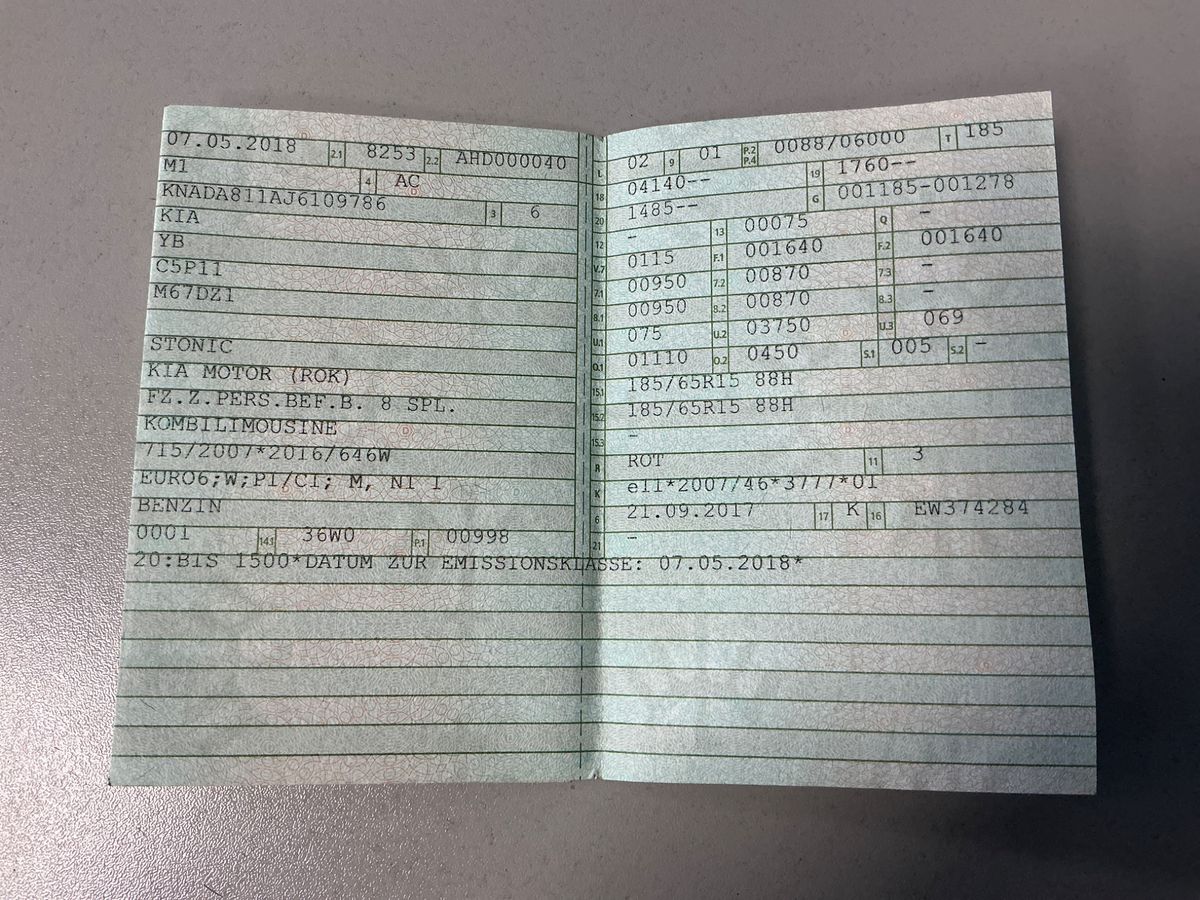 07.05.2018 2.1 8253 2.2 AHD000040
M1 4 AC
KNADA811AJ6109786 3 6
KIA
YB
C5P11
M67DZ1
STONIC
KIA MOTOR (ROK)
FZ.Z.PERS.BEF.B. 8 SPL.
KOMBILIMOUSINE
715/2007*2016/646W
EURO6;W;PI/CI; M, N1 I
BENZIN
0001 14.1 36W0 P.1 00998
L 02 9 01 P.2 P.4 0088/06000 T 185
18 04140-- 19 1760--
20 1485-- G 001185-001278
12 - 13 00075 Q -
V.7 0115 F.1 001640 F.2 001640
7.1 00950 7.2 00870 7.3 -
8.1 00950 8.2 00870 8.3 -
U.1 075 U.2 03750 U.3 069
O.1 01110 O.2 0450 S.1 005 S.2 -
15.1 185/65R15 88H
15.2 185/65R15 88H
15.3 -
R ROT 11 3
K e11*2007/46*3777*01
6 21.09.2017 17 K 16 EW374284
21 -
20:BIS 1500*DATUM ZUR EMISSIONSKLASSE: 07.05.2018*